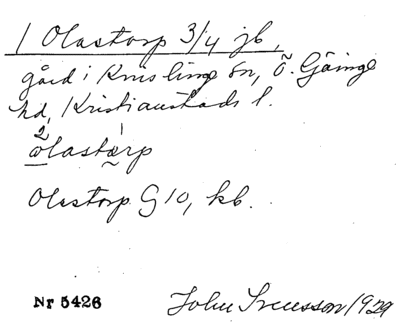 1 Olastorp 3/4 jb,
gård i Knislinge sn, Ö. Göinge
hd, Kristianstads l.
2
olastærp
Olastorp G 10, kb.
Nr 5426 John Svensson 1929